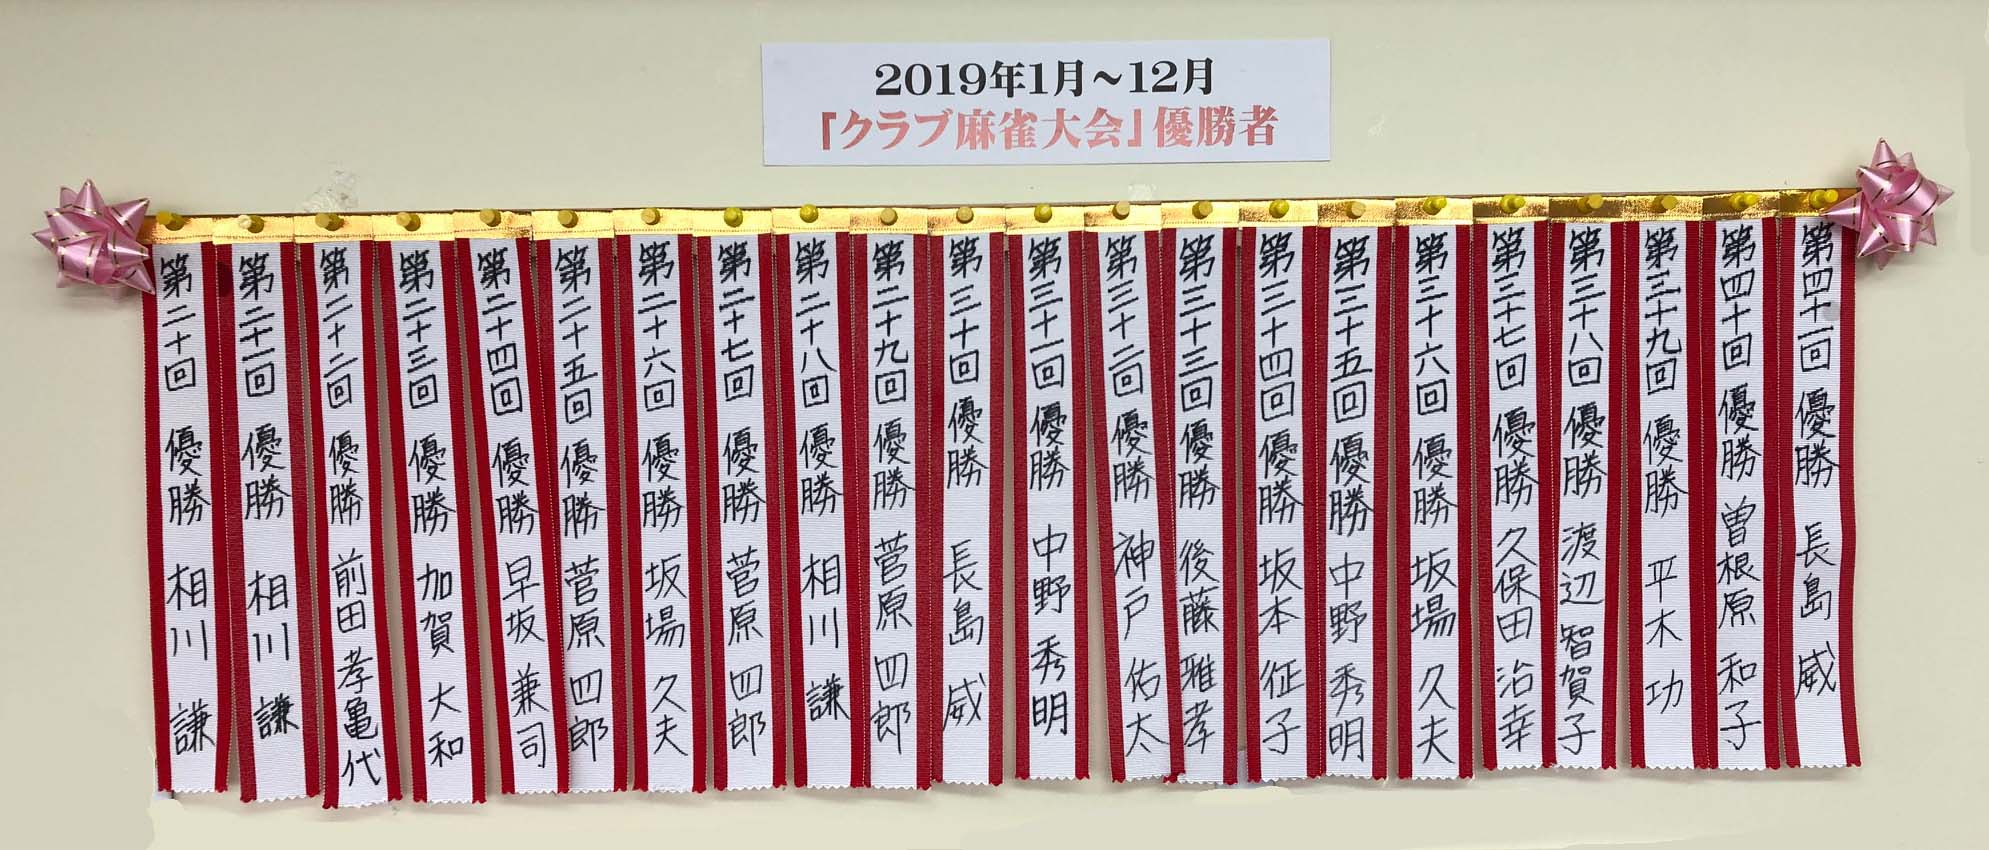 2019年1月～12月
「クラブ麻雀大会」優勝者
第二十回 優勝 相川 謙
第二十一回 優勝 相川 謙
第二十二回 優勝 前田 孝亀代
第二十三回 優勝 加賀 大和
第二十四回 優勝 早坂 兼司
第二十五回 優勝 菅原 四郎
第二十六回 優勝 坂場 久夫
第二十七回 優勝 菅原 四郎
第二十八回 優勝 相川 謙
第二十九回 優勝 菅原 四郎
第三十回 優勝 長島 威
第三十一回 優勝 中野 秀明
第三十二回 優勝 神戸 佑太
第三十三回 優勝 後藤 雅孝
第三十四回 優勝 坂本 征子
第三十五回 優勝 中野 秀明
第三十六回 優勝 坂場 久夫
第三十七回 優勝 久保田 治幸
第三十八回 優勝 渡辺 智賀子
第三十九回 優勝 平木 功
第四十回 優勝 曽根原 和子
第四十一回 優勝 長島 威